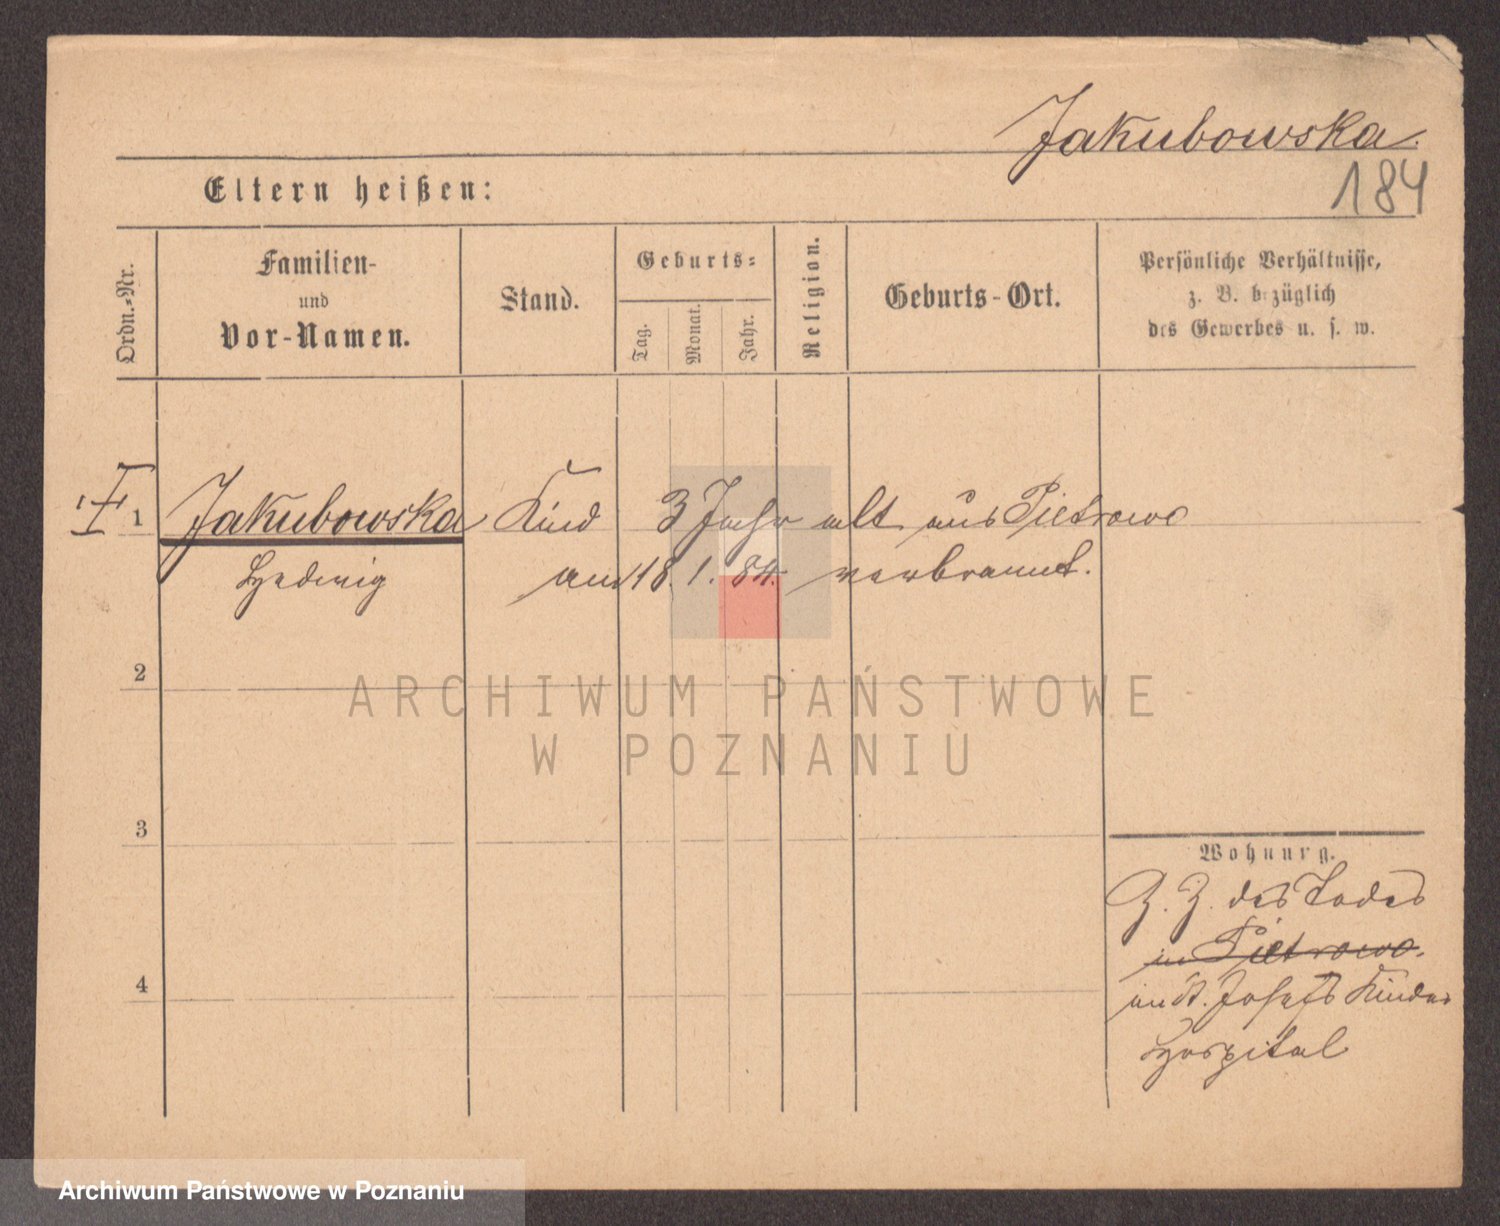 Jakubowska.
184
Eltern heißen:
Ordn.-Nr.
Familien-
und
Vor-Namen.
Stand.
Geburts-
Tag.
Monat.
Jahr.
Religion.
Geburts-Ort.
Persönliche Verhältnisse,
z. B. bezüglich
des Gewerbes u. s. w.
1 Jakubowska Kind 3 Jahr alt aus Pietrowo
Hedwig am 18. 1. 84. verbrannt.
2
ARCHIWUM PAŃSTWOWE
W POZNANIU
3
Wohnung.
Z. Z. des Todes
in Pietrowo.
im St. Josefs Kinder
Hospital
4
Archiwum Państwowe w Poznaniu